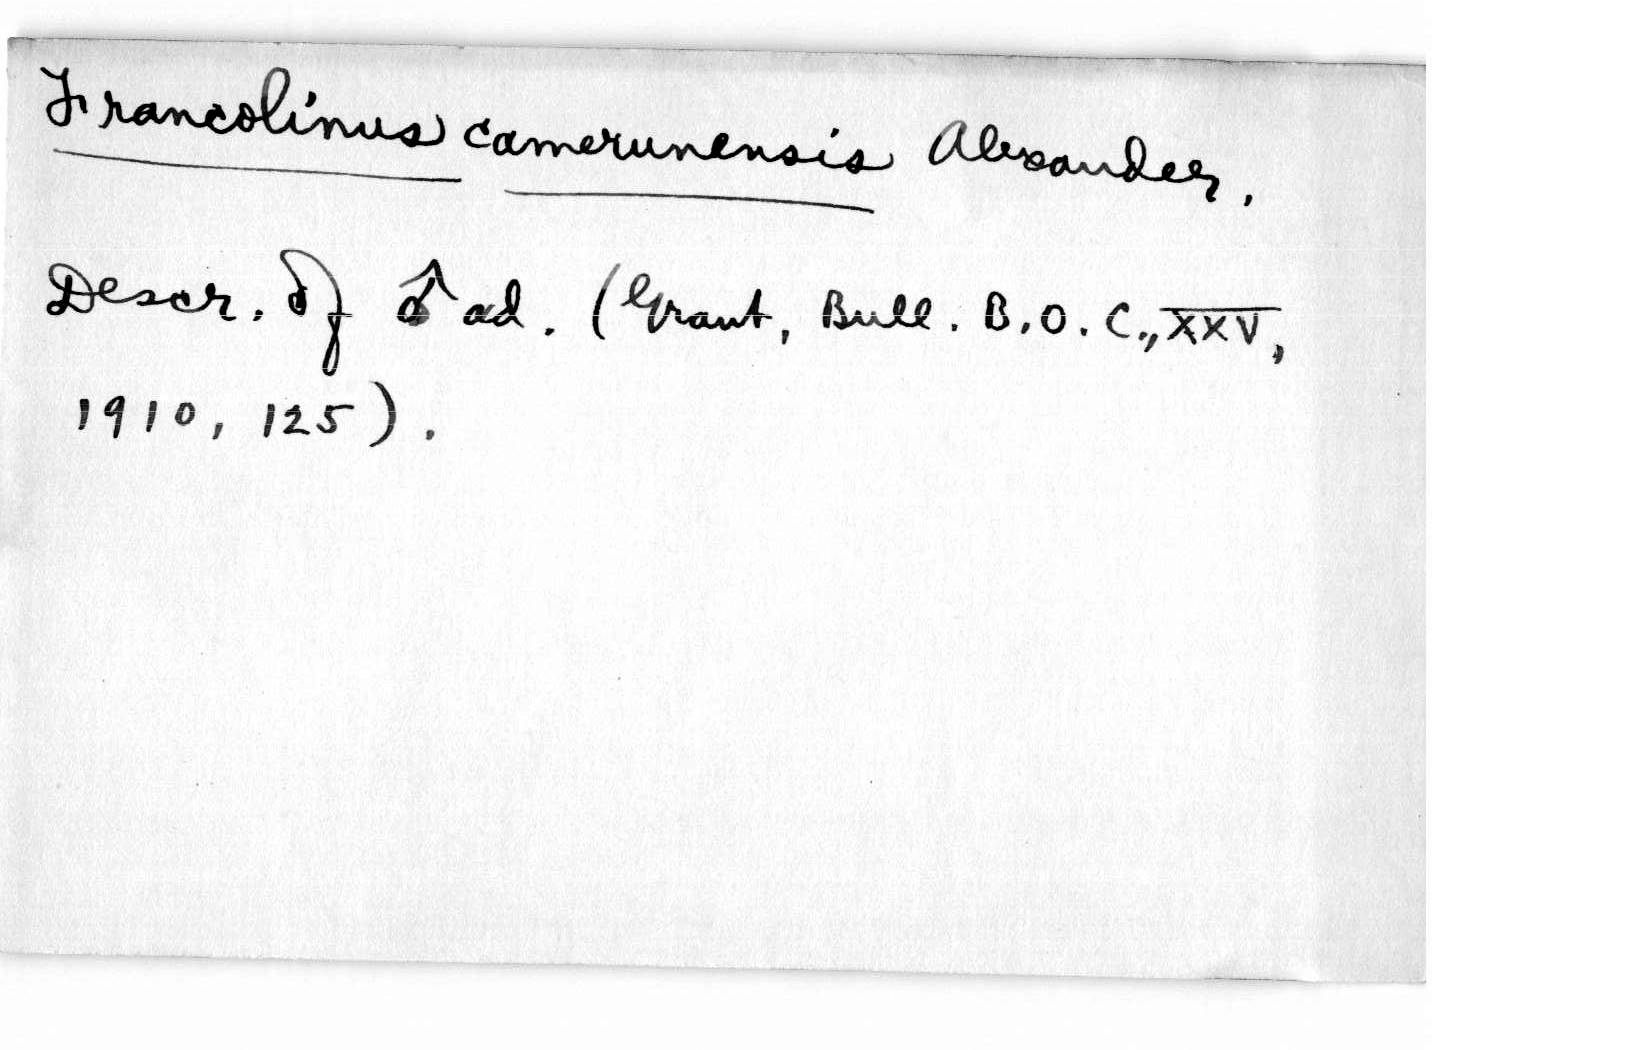 Francolinus camerunensis Alexander,
Descr. of ♂ ad. (Grant, Bull. B.O.C., XXV,
1910, 125).